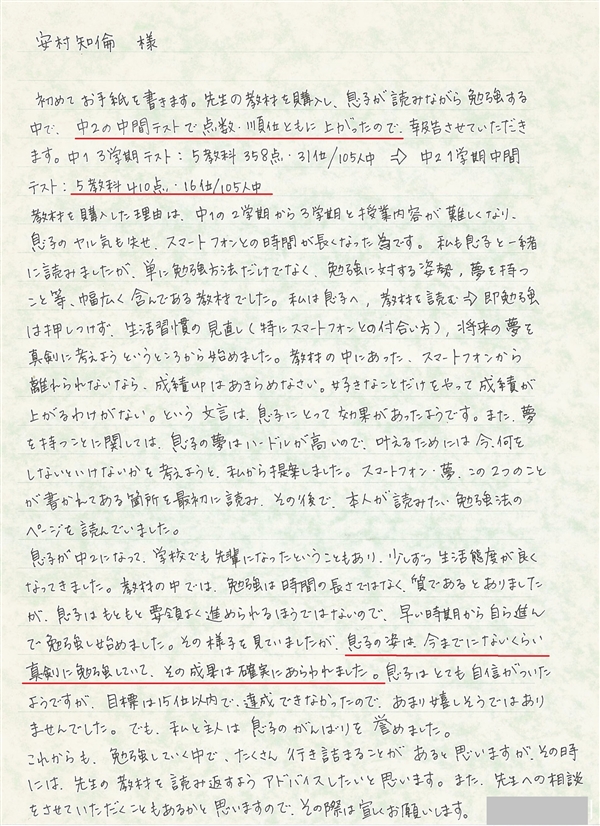 安村知倫 様
初めてお手紙を書きます。先生の教材を購入し、息子が読みながら勉強する
中で、中2の中間テストで点数・順位ともに上がったので、報告させていただき
ます。中1 3学期テスト：5教科358点・31位/105人中 ⇨ 中2 1学期中間
テスト：5教科410点・16位/105人中
教材を購入した理由は、中1の2学期から3学期と授業内容が難しくなり、
息子のヤル気も失せ、スマートフォンとの時間が長くなった為です。私も息子と一緒
に読みましたが、単に勉強方法だけでなく、勉強に対する姿勢，夢を持つ
こと等、幅広く含んである教材でした。私は息子へ，教材を読む⇨即勉強
は押しつけず、生活習慣の見直し(特にスマートフォンとの付合い方)，将来の夢を
真剣に考えようというところから始めました。教材の中にあった、スマートフォンから
離れられないなら、成績upはあきらめなさい。好きなことだけをやって成績が
上がるわけがない。という文言は、息子にとって効果があったようです。また、夢
を持つことに関しては、息子の夢はハードルが高いので、叶えるためには今、何を
しないといけないかを考えようと、私から提案しました。スマートフォン・夢、この2つのこと
が書かれてある箇所を最初に読み、その後で、本人が読みたい勉強法の
ページを読んでいました。
息子が中2になって、学校でも先輩になったということもあり、少しずつ生活態度が良く
なってきました。教材の中では、勉強は時間の長さではなく、質であるとありました
が、息子はもともと要領よく進められるほうではないので、早い時期から自ら進ん
で勉強し始めました。その様子を見ていましたが、息子の姿は、今までにないくらい
真剣に勉強していて、その成果は確実にあらわれました。息子はとても自信がついた
ようですが、目標は15位以内で、達成できなかったので、あまり嬉しそうではあり
ませんでした。でも、私と主人は息子のがんばりを誉めました。
これからも、勉強していく中で、たくさん行き詰まることがあると思いますが、その時
には、先生の教材を読み返すようアドバイスしたいと思います。また、先生への相談
をさせていただくこともあるかと思いますので、その際は宜しくお願いします。